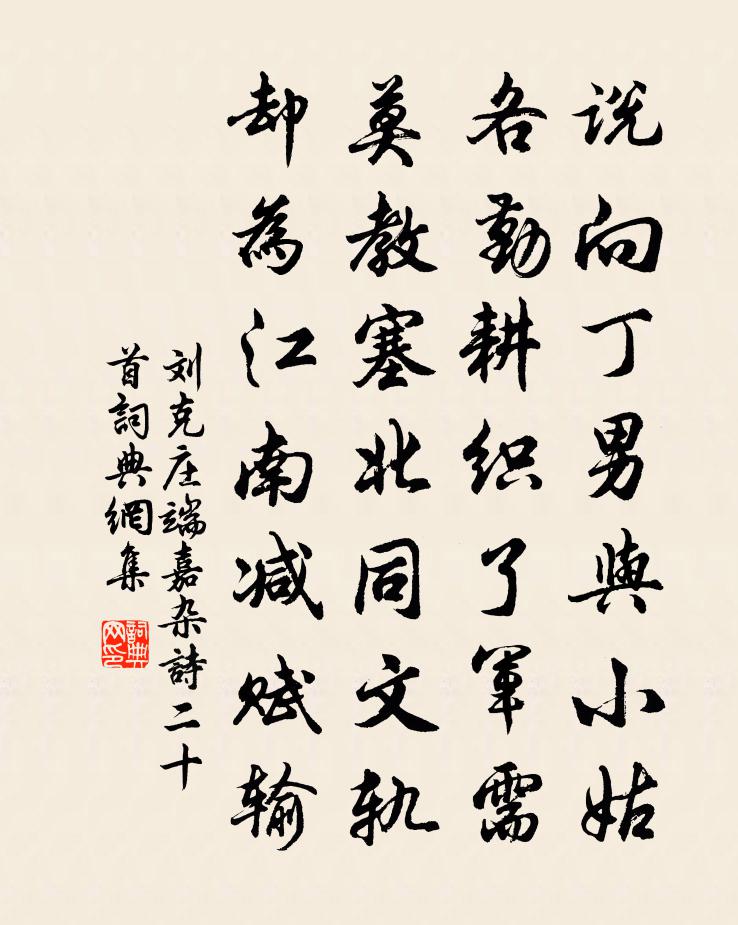 説向丁男與小姑
各勤耕织了軍需
莫教塞北同文轨
却為江南减赋输
刘克庄端嘉杂詩二十
首詞典網集
詞典网印